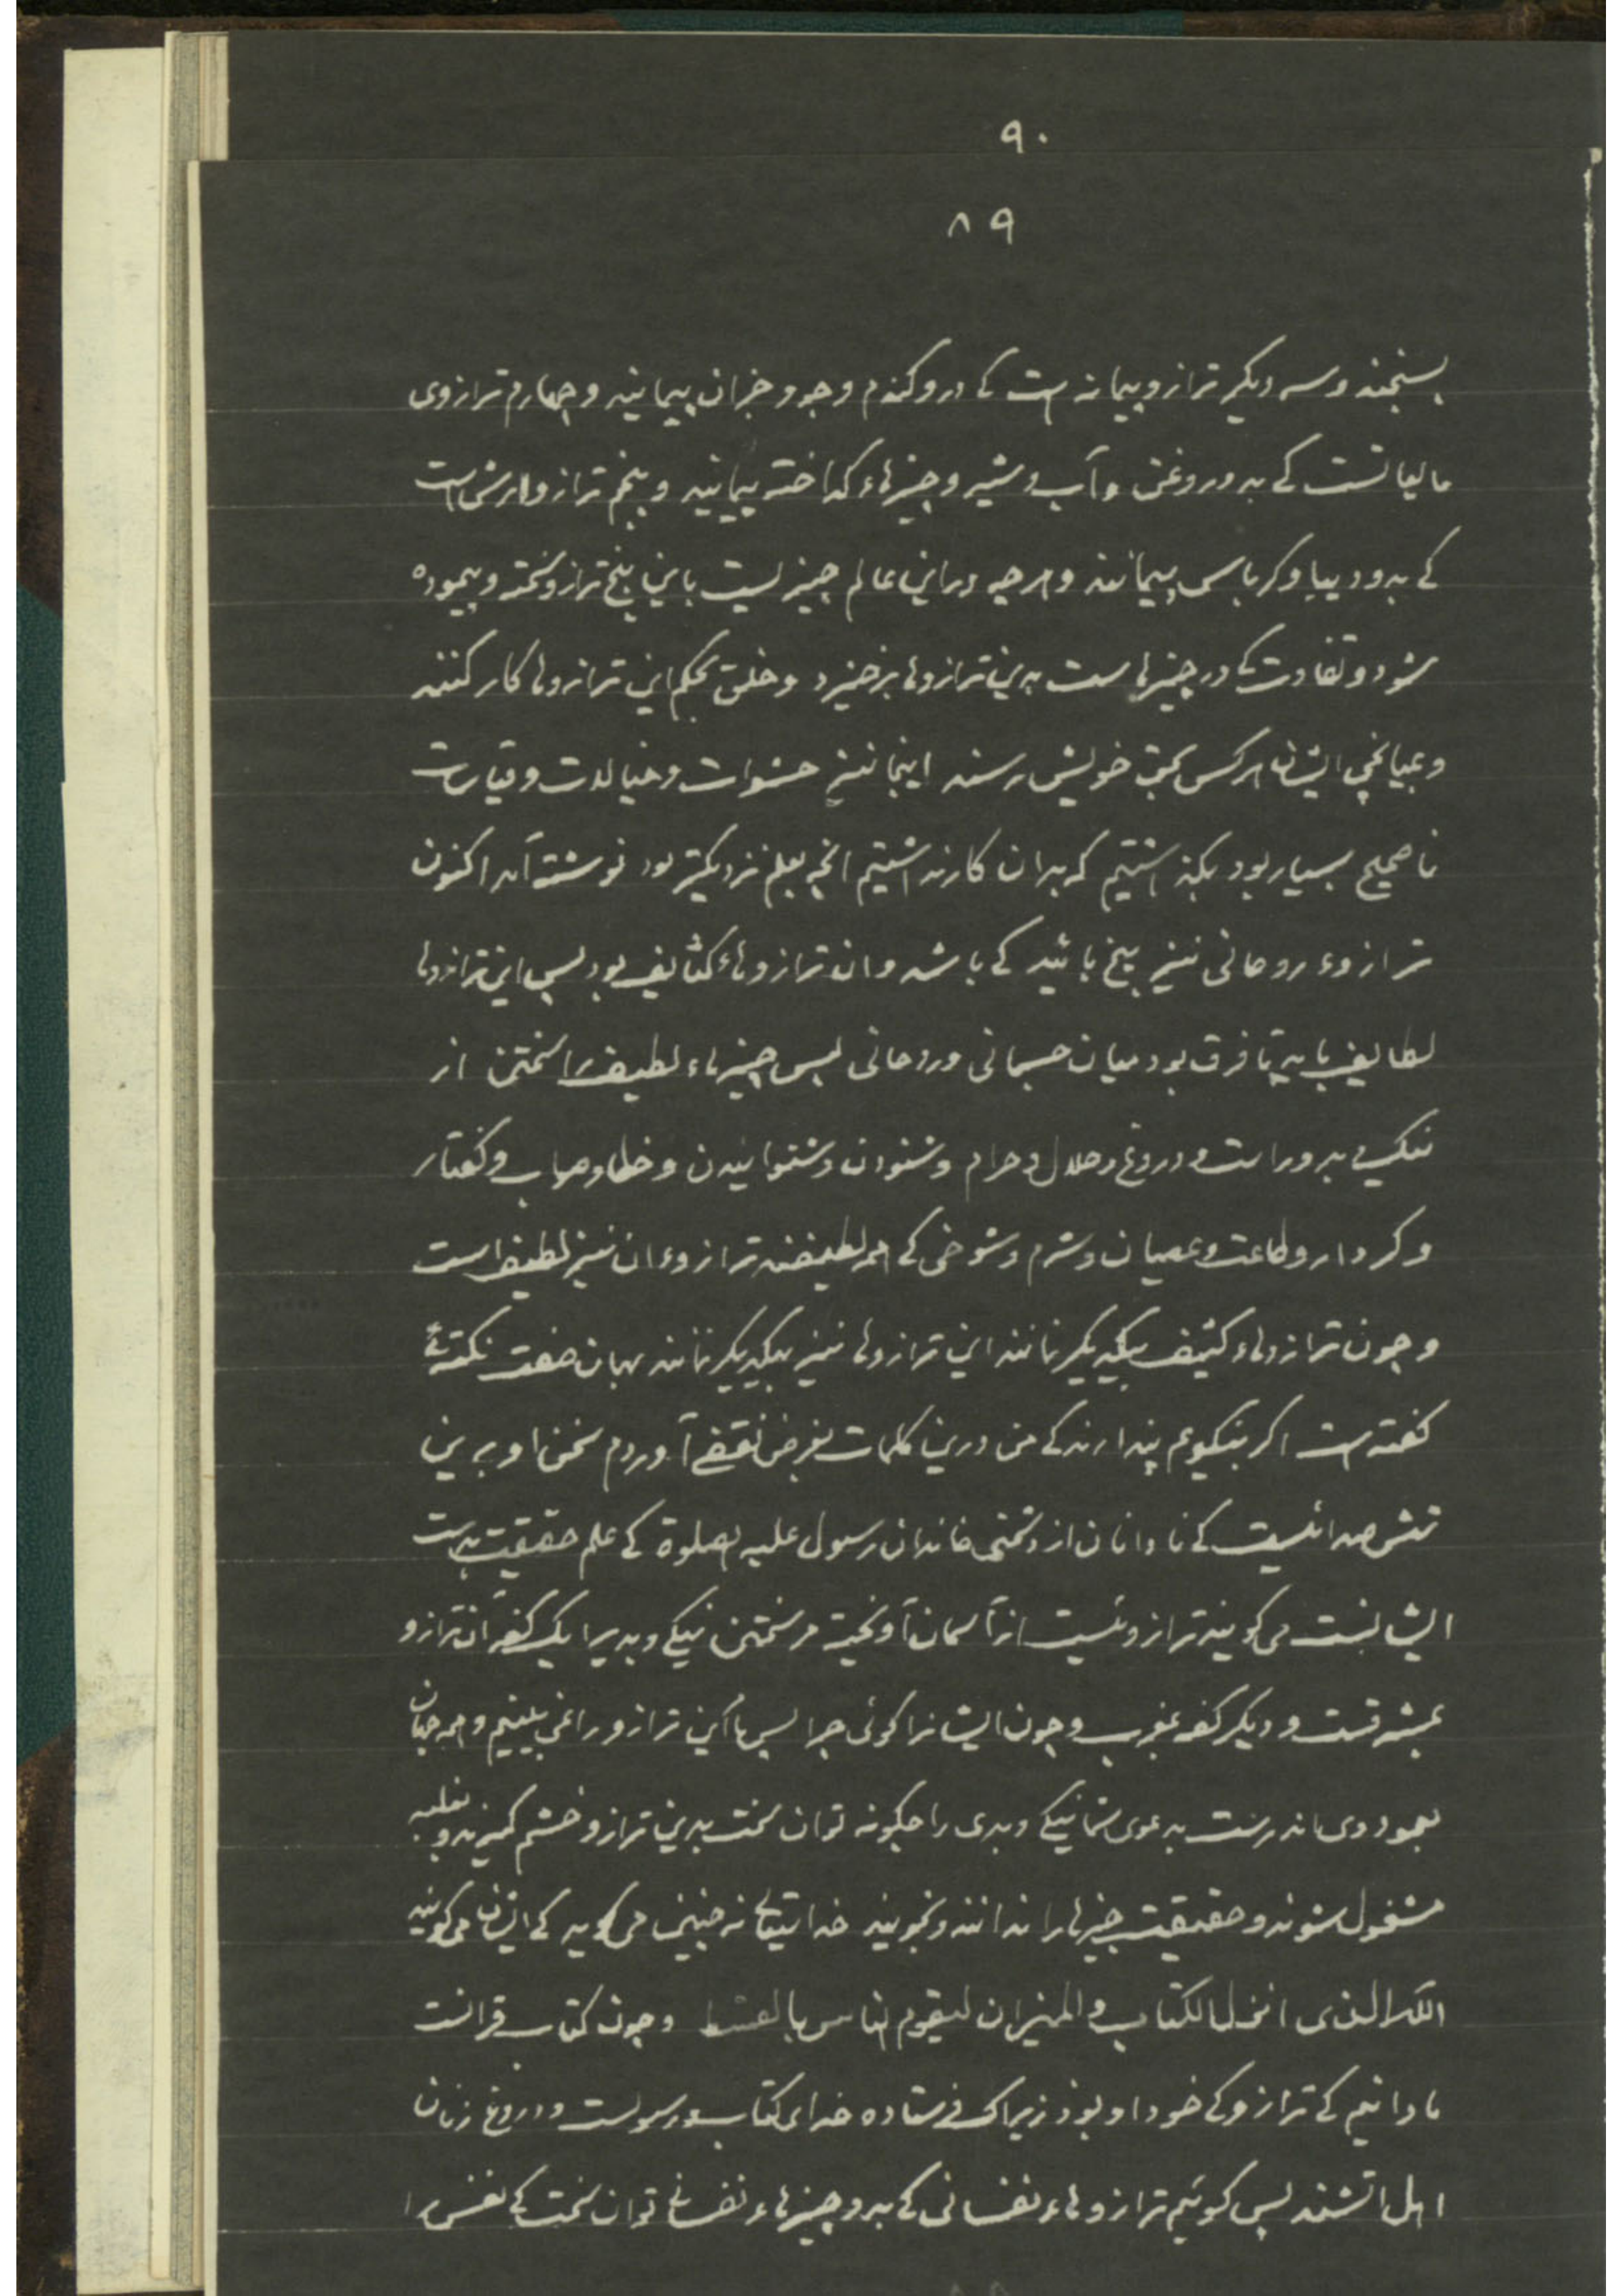 ۹۰
۸۹
بسنجند و سه دیگر ترازو پیمانه است کے درو کندم و جو و جزان پیمایند و چهارم ترازوی
مایعاتست کے بدو روغن و آب و شیر و چیزهاء کداخته پیمایند و پنجم ترازو ارش است
کے بدو دیبا و کرباس پیمایند و هر چه در این عالم چیزیست باین پنج ترازو سخته و پیموده
شود و تفاوت کے در چیزهاست بدین ترازوها برخیزد و خلق بحکم این ترازوها کار کنند
و بمیانجی ایشان هر کس بحق خویش رسند اینجا نیز حشوات و خیالات و قیاسات
ناصحیح بسیار بود بکذاشتیم که بدان کار نداشتیم انچه بعلم نزدیکتر بود نوشته آمد اکنون
ترازوء روحانی نیز پنج باید کے باشد و ان ترازوهاء کثایف بود پس این ترازوها
لطایف باید تا فرق بود میان جسمانی و روحانی پس چیزهاء لطیف را سختن از
نیک و بد و راست و دروغ و حلال و حرام و شنودن و شنوانیدن و خطا و صواب و کفتار
و کردار و طاعت و عصیان و شرم و شوخی کے همه لطیفند ترازوء ان نیز لطیف است
و چون ترازوهاء کثیف بیکدیکر نمانند این ترازوها نیز بیکدیکر نمانند بهمان صفت نکته‌ئے
کفته است اکر بنیکویم پندارند کے من درین کلمات بغرض نقصے آوردم سخن او برین
کے نادانان از دشمنی خاندان رسول علیه الصلوة کے علم حقیقت بدست
ایشانست می کویند ترازوئیست از آسمان آویخته مر سختن نیکے و بدیرا یک کفه آن ترازو
بمشرقست و دیکر کفه بمغرب و چون ایشانرا کوئی چرا پس ما این ترازو را نمی بینیم و همه جهان
بدعوی شما نیکے و بدی را چکونه توان سخت بدین ترازو خشم کیرند و بغلبه
مشغول شوند و حقیقت چیزها را ندانند و نجویند خدایتعالے نه چنین می کوید کے ایشان می کویند
الله الذی انزل الکتاب و المیزان لیقوم الناس بالقسط و چون کتاب قرانست
ما دانیم کے ترازو کے خود او بود زیراک فرستاده خدای کتاب و رسولست و دروغ زنان
اهل اتشند پس کوئیم ترازوهاء نفسانی کے بدو چیزهاء نفسانے توان سخت کے نفس را